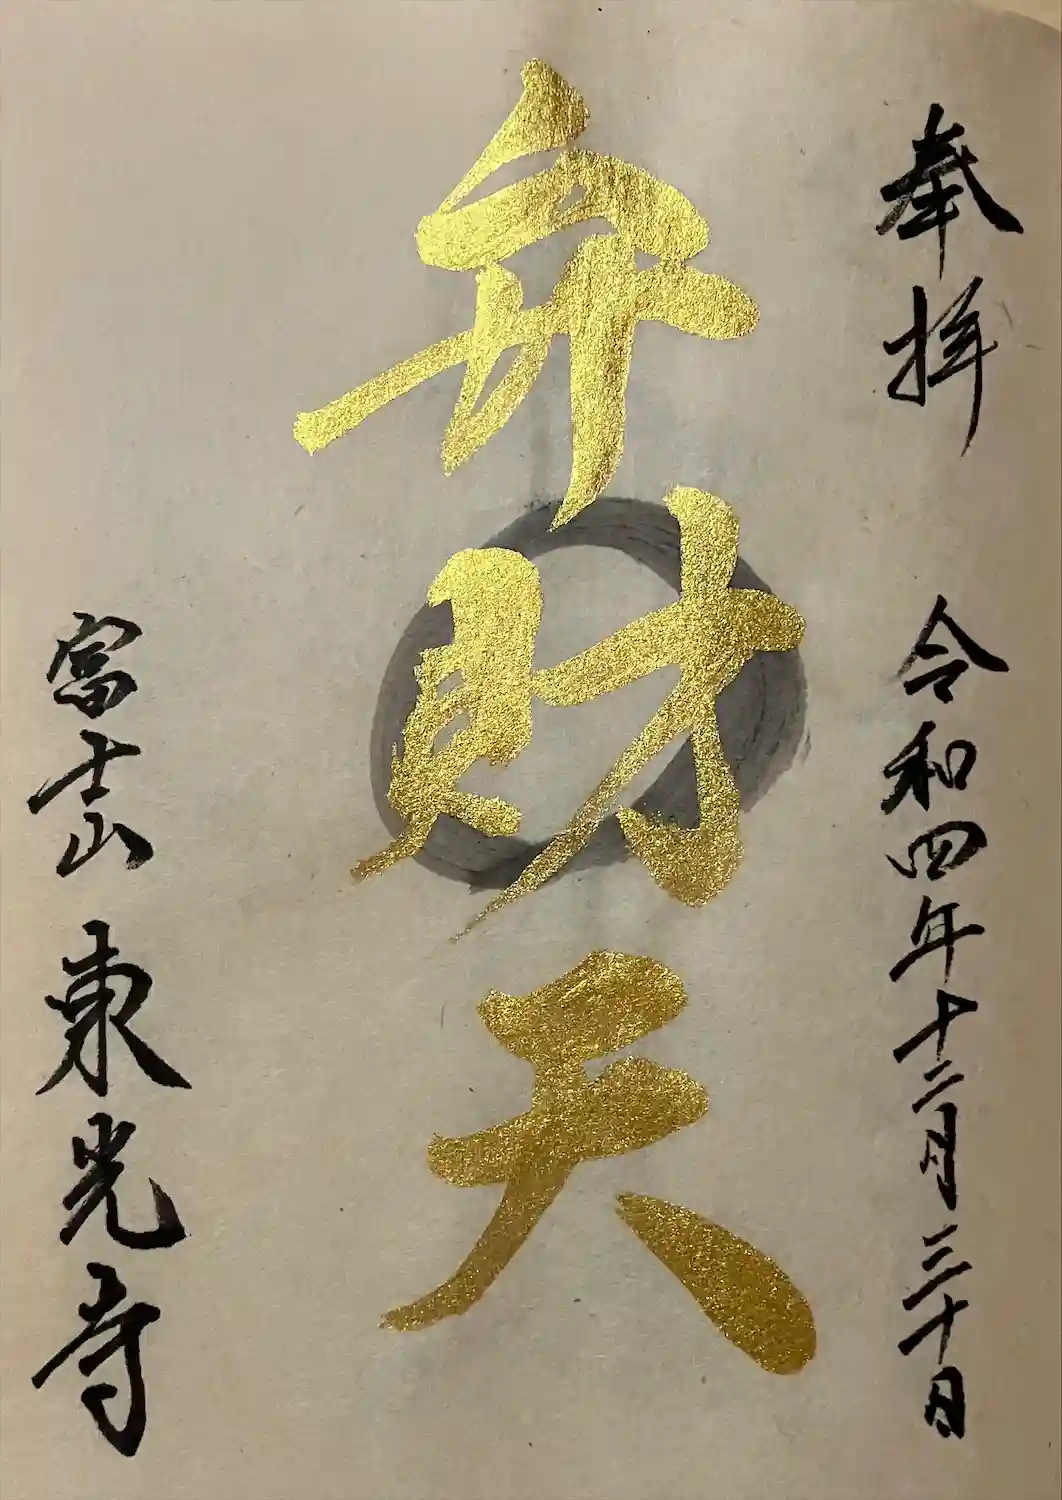 奉拝　令和四年十二月三十日
弁財天
富士山　東光寺